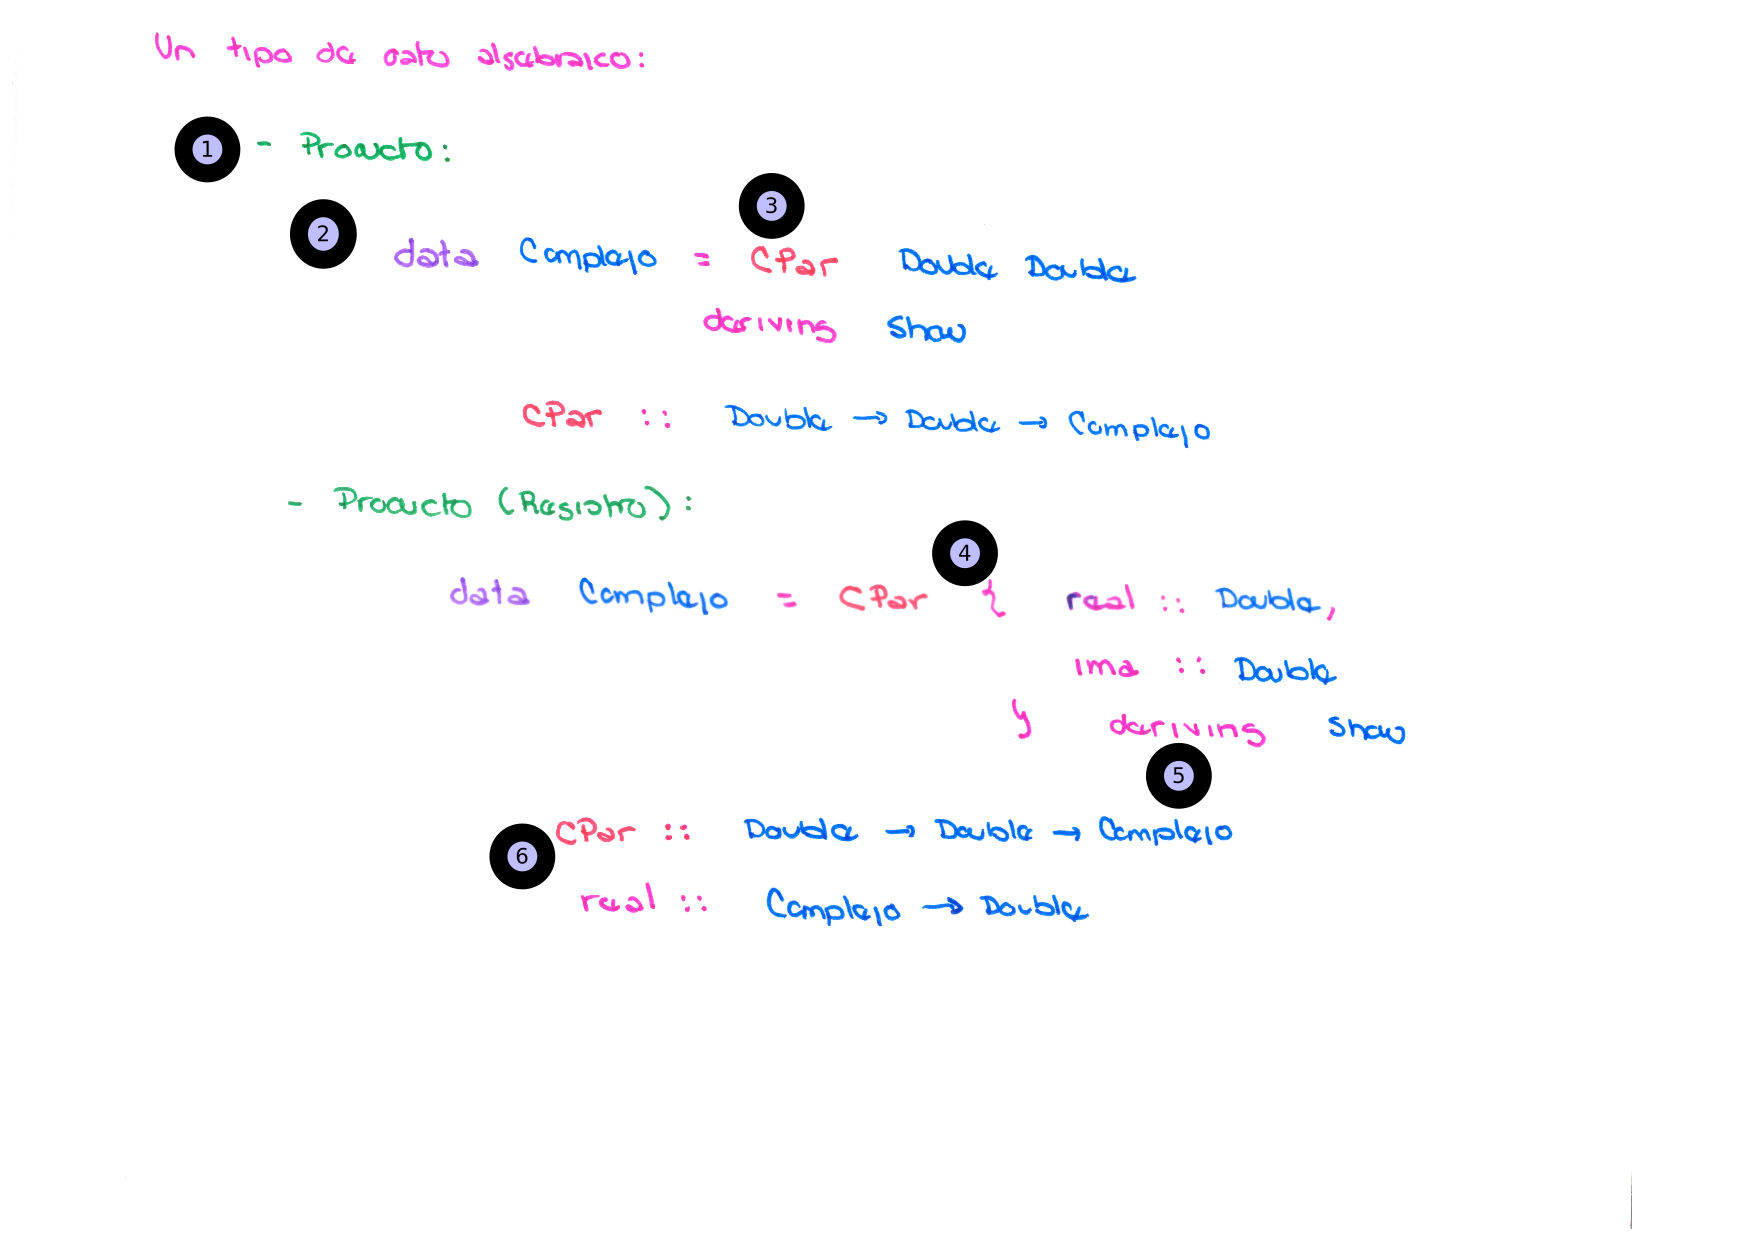 Un tipo de dato algebraico:
1 - Producto:
2 3
data Complejo = CPar Double Double
deriving Show
CPar :: Double → Double → Complejo
- Producto (Registro):
4
data Complejo = CPar { real :: Double,
ima :: Double
} deriving Show
5
6 CPar :: Double → Double → Complejo
real :: Complejo → Double